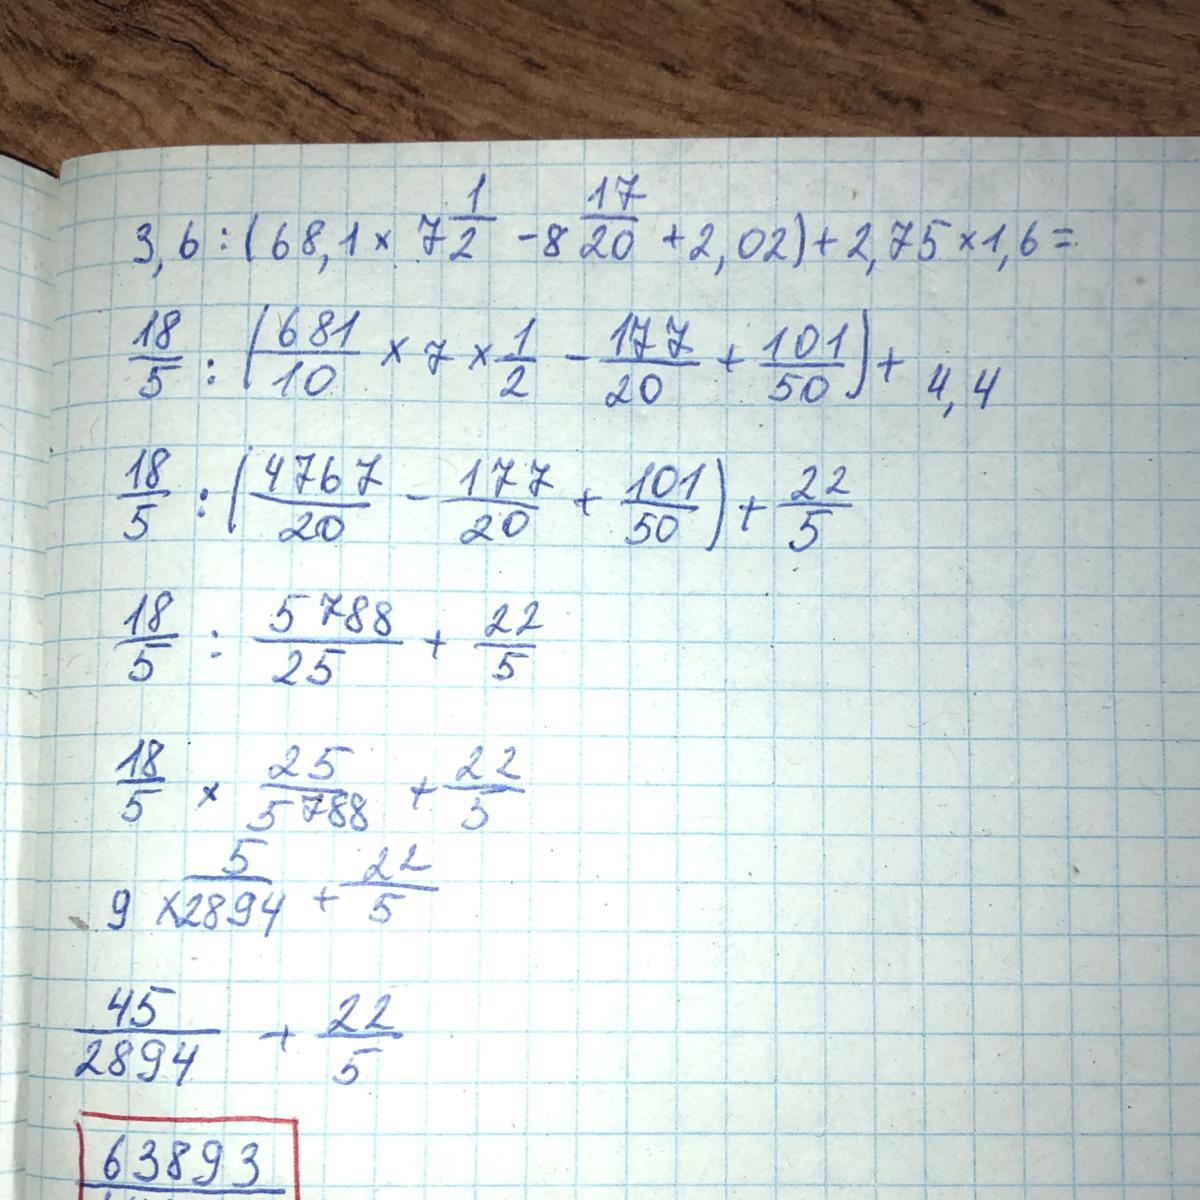 3,6 : (68,1 × 7 1/2 - 8 17/20 + 2,02) + 2,75 × 1,6 =
18/5 : (681/10 × 7 × 1/2 - 177/20 + 101/50) + 4,4
18/5 : (4767/20 - 177/20 + 101/50) + 22/5
18/5 : 5788/25 + 22/5
18/5 × 25/5788 + 22/5
9 × 5/2894 + 22/5
45/2894 + 22/5
63893